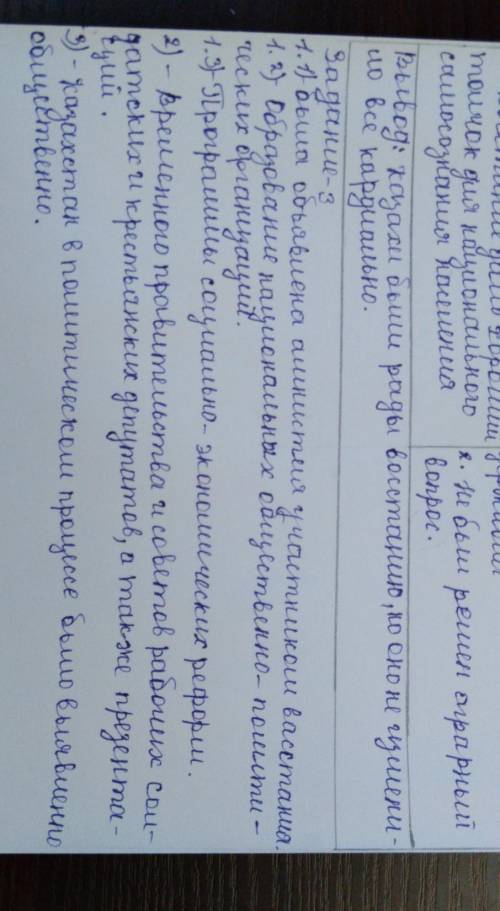 толчок для национального
самосознания населения
2. Не был решен аграрный
вопрос.
Вывод: казахи были рады восстанию, но оно не изменило
ло все кардиально.
Задание-3
1.1) Была объявлена амнистия участником васстания.
1.2) Образование национальных общественно-полити-
ческих организаций.
1.3) Программы социально-экономических реформ.
2) - Временного правительства и советов рабочих сол-
датских и крестьянских депутатов, а также презента-
ций.
3) - Казахстан в политическом процессе было выявленно
общественно.